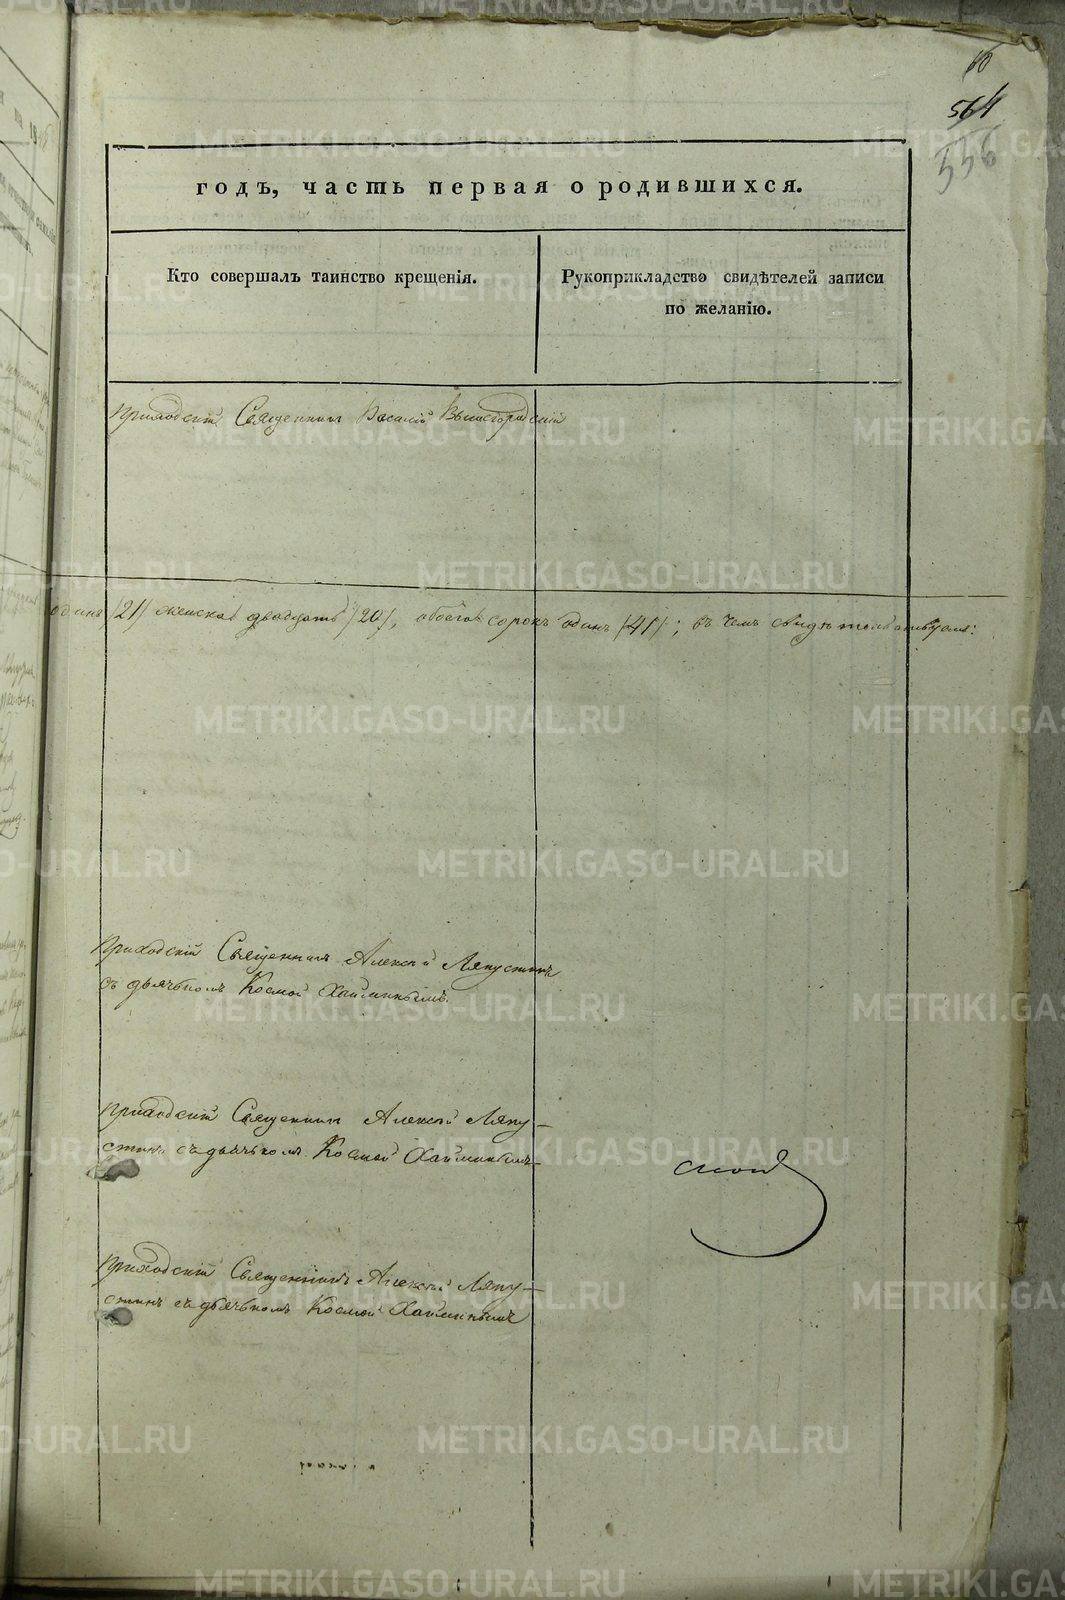 60
564
556
годъ, часть первая о родившихся.
Кто совершалъ таинство крещенія.
Рукоприкладство свидѣтелей записи
по желанію.
Приходскій Священникъ Василій
одинъ /21/ женска двадцать /20/, обоего сорокъ одинъ /41/; въ чемъ свидѣтельствуемъ:
Приходскій Священникъ Алексѣй Ляпустинъ
съ дьячкомъ Космой
Приходскій Священникъ Алексѣй Ляпу-
стинъ съ дьячкомъ Космой
Приходскій Священникъ Алексѣй Ляпу-
стинъ съ дьячкомъ Космой
METRIKI.GASO-URAL.RU